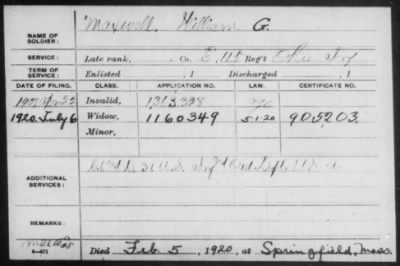 NAME OF SOLDIER: Maxwell, William G.
SERVICE: Late rank, Co. E, 115 Reg't Ohio Inf
TERM OF SERVICE: Enlisted , 1 Discharged , 1
DATE OF FILING. CLASS. APPLICATION NO. LAW. CERTIFICATE NO.
Invalid, 1313398
1920. July 6 Widow, 1160349 5-1-20 905203.
Minor,
ADDITIONAL SERVICES:
REMARKS:
Died Feb. 5, 1920, at Springfield, Mass.